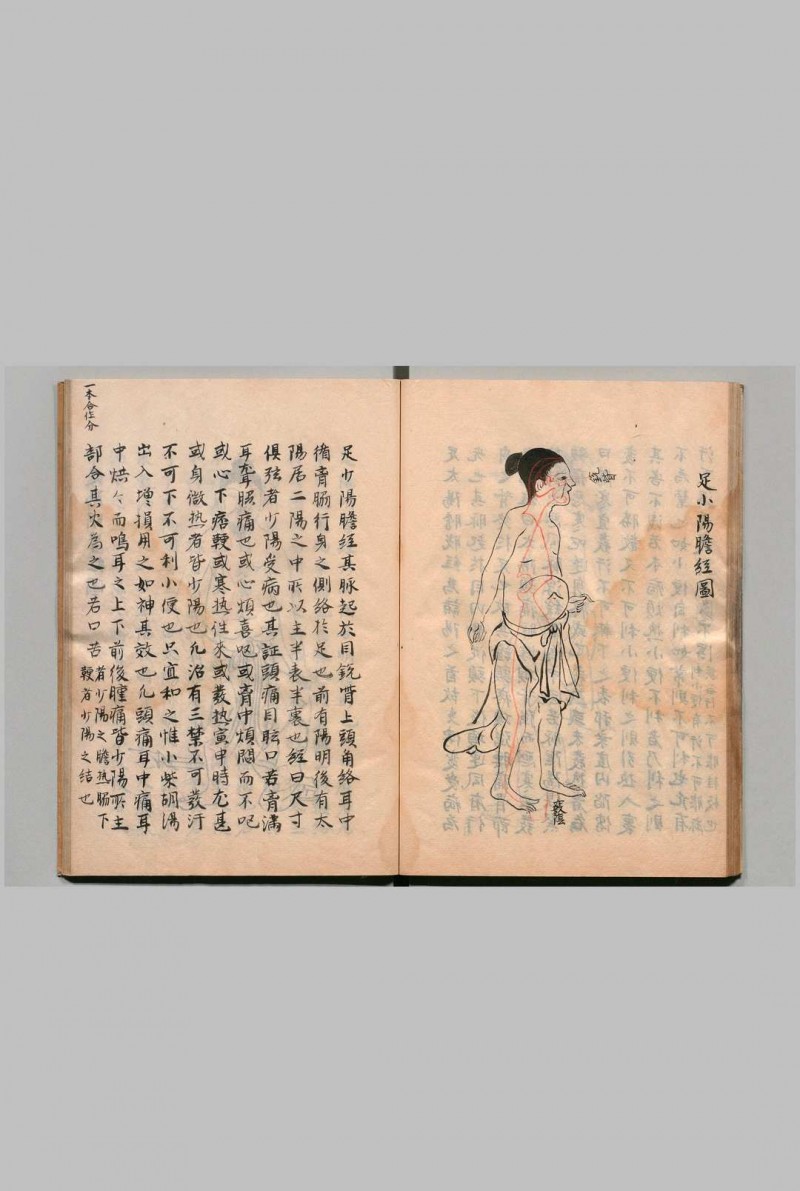 足小陽膽経圖
竅陰
足少陽膽経其脉起於目銳眥上頭角絡耳中
循膏脇行身之側絡於足也前有陽明後有太
陽居二陽之中所以主半表半裏也経曰尺寸
俱弦者少陽受病也其証頭痛目眩口苦膏滿
耳聾脇痛也或心煩喜呕或膏中煩悶而不呕
或心下痞鞕或寒热往来或發热寅申時尤甚
或身微热者皆少陽也凡治有三禁不可發汗
不可下不可利小便也只宜和之惟小柴胡湯
出入增損用之如神其效也凡頭痛耳中痛耳
中烘々而鳴耳之上下前後腫痛皆少陽所主
部合其火為之也若口苦
者少陽之膽热脇下
鞕者少陽之结也
一本合作分